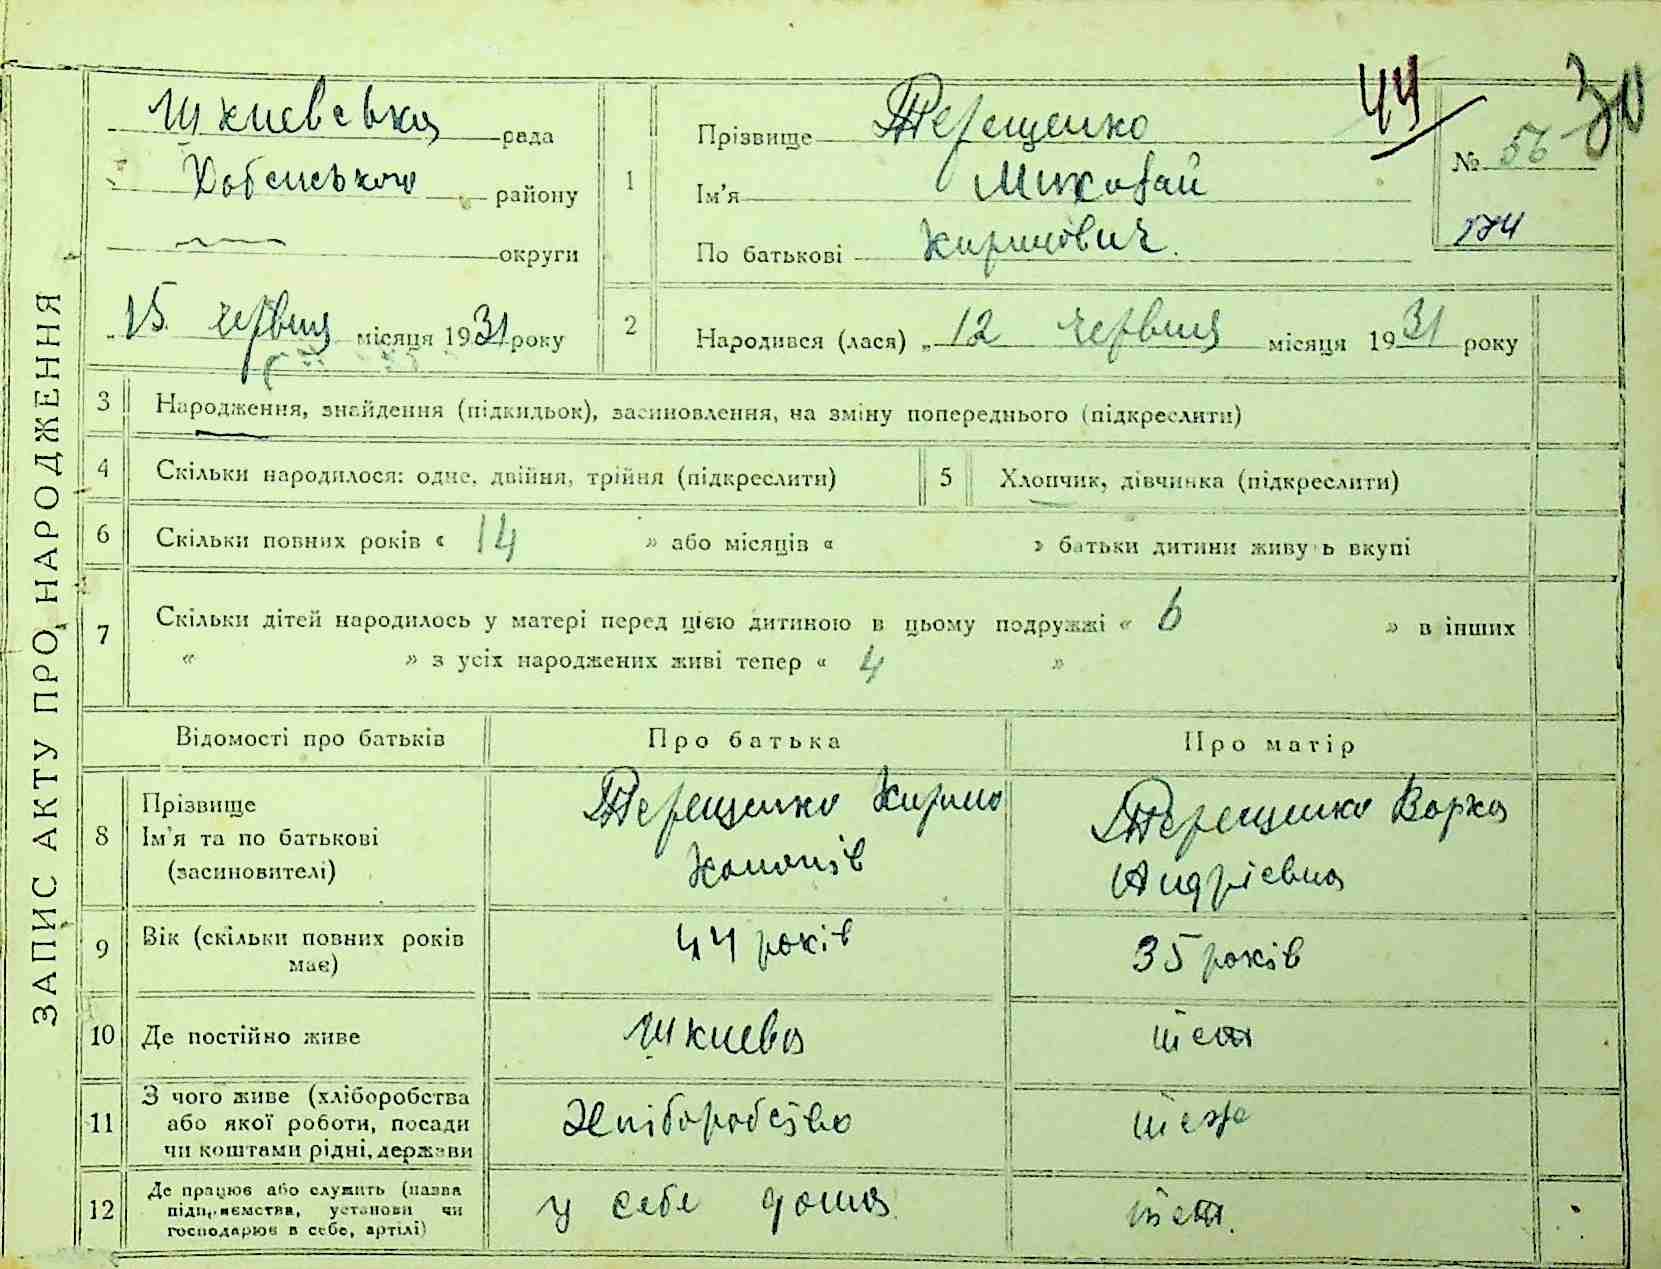 ЗАПИС АКТУ ПРО НАРОДЖЕННЯ
Шкневська рада
Хабенського району
округи
„ 15 червня місяця 1931 року
44
30
1 Прізвище Терещенко
Ім'я Миколай
По батькові Кирилович.
№ 56
174
2 Народився (лася) „ 12 червня місяця 1931 року
3 Народження, знайдення (підкидьок), засиновлення, на зміну попереднього (підкреслити)
4 Скільки народилося: одне, двійня, трійня (підкреслити)
5 Хлопчик, дівчинка (підкреслити)
6 Скільки повних років « 14 » або місяців « » батьки дитини живуть вкупі
7 Скільки дітей народилось у матері перед цією дитиною в цьому подружжі « 6 » в інших
« » з усіх народжених живі тепер « 4 »
Відомості про батьків Про батька Про матір
8 Прізвище
Ім'я та по батькові
(засиновителі)
Терещенко Кирило
Кононів
Терещенко Варка
Андрієвна
9 Вік (скільки повних років
має)
44 років
35 років
10 Де постійно живе
Шкнева
теж
11 З чого живе (хліборобства
або якої роботи, посади
чи коштами рідні, держави
Хліборобство
теж
12 Де працює або служить (назва
підприємства, установи чи
господарює в себе, артілі)
у себе дома
теж.